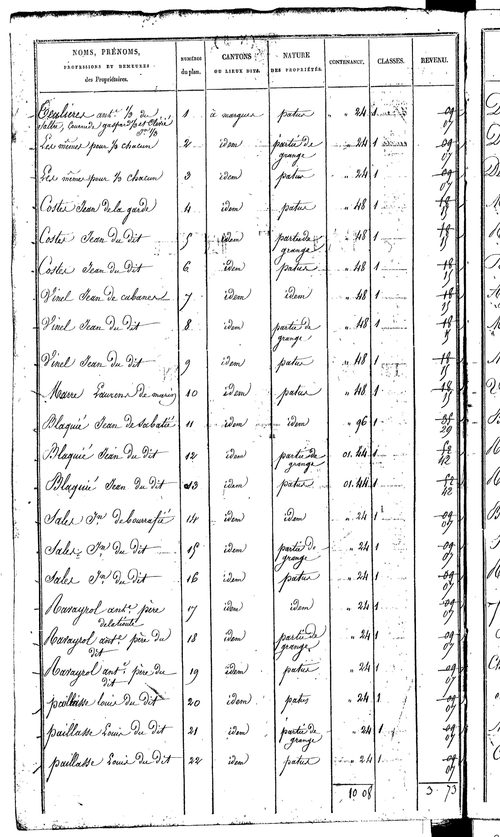 NOMS, PRÉNOMS, PROFESSIONS ET DEMEURES des Propriétaires. NUMÉROS du plan. CANTONS OU LIEUX DITS. NATURE DES PROPRIÉTÉS. CONTENANCE. CLASSES. REVENU.
Teulieres ant.e 1/3 du 1 à margues patus " " 24 1 09 07
Les mêmes pour 1/3 chacun 2 idem partie de grange " 24 1 09 07
Les même pour 1/3 chacun 3 idem patus " 24 1 09 07
Costes Jean de la garde 4 idem patus " 48 1 18 15
Costes Jean du dit 5 idem partie de grange " 48 1 18 15
Costes Jean du dit 6 idem patus " 48 1 18 15
Vinel Jean de cabanes 7 idem idem " 48 1 18 15
Vinel Jean du dit 8 idem partie de grange " 48 1 18 15
Vinel Jean du dit 9 idem patus " 48 1 18 15
Marre Laurens de 10 idem patus " 48 1 18 15
Blaquié Jean de sabatié 11 idem idem " 96 1 29
Blaquié Jean du dit 12 idem partie de grange 01. 44 1 42
Blaquié Jean du dit 13 idem patus 01. 44 1 42
Sales J.n de bourrafié 14 idem idem " 24 1 09 07
Sales J.n du dit 15 idem partie de grange " 24 1 09 07
Sales J.n du dit 16 idem patus " 24 1 09 07
Ravayrol ant.e père 17 idem idem " 24 1 09 07
Ravayrol ant.e père du dit 18 idem partie de grange " 24 1 09 07
Ravayrol ant.e père du dit 19 idem patus " 24 1 09 07
paillasse louis du dit 20 idem patus " 24 1 09 07
paillasse Louis du dit 21 idem partie de grange " 24 1 09 07
paillasse Louis du dit 22 idem patus " 24 1 09 07
10 08 3 73